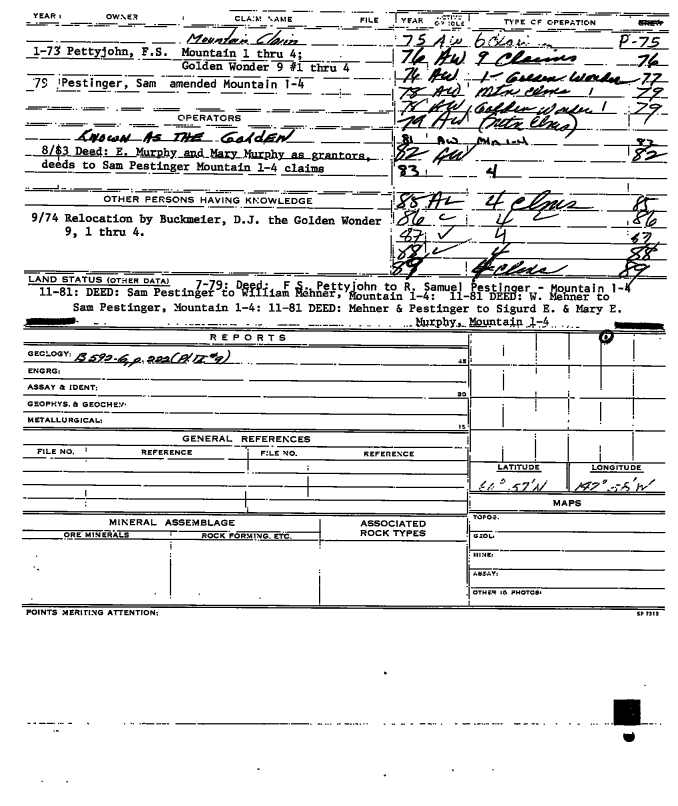 YEAR OWNER CLAIM NAME FILE YEAR ACTIVE OR IDLE TYPE OF OPERATION
Mountain Claim 75 AW 6 P-75
1-73 Pettyjohn, F.S. Mountain 1 thru 4; 76 AW 9 Claims 76
Golden Wonder 9 #1 thru 4 76 AW 1- Golden Wonder 77
79 Pestinger, Sam amended Mountain 1-4 78 AW Mtn clms 1 79
78 AW Golden Wonder 1 79
OPERATORS 79 AW (Mtn Clms)
KNOWN AS THE GOLDEN 81 AW Mtn 1-4
8/83 Deed: E. Murphy and Mary Murphy as grantors, 82 AW 82
deeds to Sam Pestinger Mountain 1-4 claims 83 4
OTHER PERSONS HAVING KNOWLEDGE 85 AL 4 Clms 85
9/74 Relocation by Buckmeier, D.J. the Golden Wonder 86 4 86
9, 1 thru 4. 87 ✓ 4 87
88 4 88
89 4 clms 89
LAND STATUS (OTHER DATA) 7-79: Deed: F S. Pettyjohn to R. Samuel Pestinger - Mountain 1-4
11-81: DEED: Sam Pestinger to William Mehner, Mountain 1-4: 11-81 DEED: W. Mehner to
Sam Pestinger, Mountain 1-4: 11-81 DEED: Mehner & Pestinger to Sigurd E. & Mary E.
Murphy, Mountain 1-4
REPORTS
GEOLOGY: B 592-G, p. 222 (Pl II #9) 45
ENGRG:
ASSAY & IDENT: 30
GEOPHYS. & GEOCHEM:
METALLURGICAL: 15
GENERAL REFERENCES
FILE NO. REFERENCE FILE NO. REFERENCE
LATITUDE LONGITUDE
60° 57'N 147° 55'W
MAPS
MINERAL ASSEMBLAGE ASSOCIATED ROCK TYPES TOPOG.
ORE MINERALS ROCK FORMING, ETC. GEOL:
MINE:
ASSAY:
OTHER IS PHOTOS:
POINTS MERITING ATTENTION: SP 7215